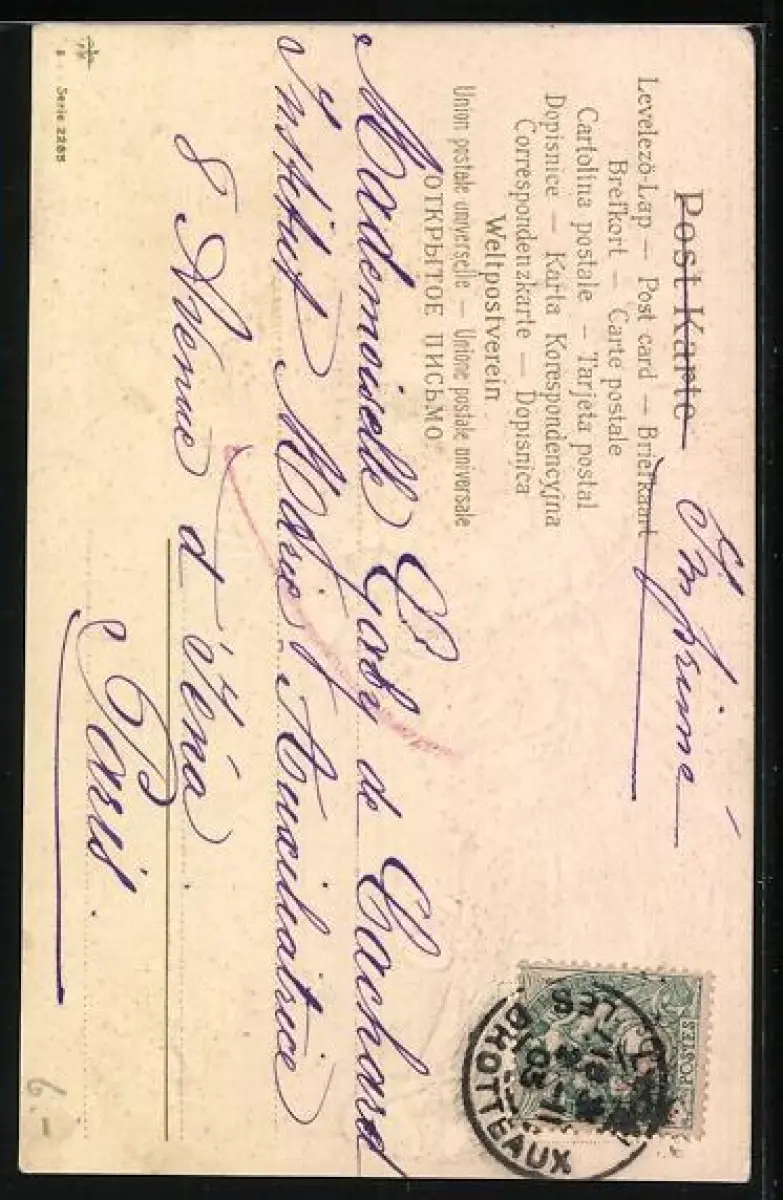 Post-Karte
Levelező-Lap — Post card — Briefkaart
Brefkort — Carte postale
Cartolina postale — Tarjeta postal
Dopisnice — Karta Korespondencyjna
Correspondenzkarte — Dopisnica
Weltpostverein
Union postale universelle — Unione postale universale
ОТКРЫТОЕ ПИСЬМО
Imprimé
POSTES
LES BROTTEAUX
03
Mademoiselle Gaby de Cochard
Institut Marie Auxiliatrice
8 Avenue d'Iéna
Paris
Serie 2285
6.-